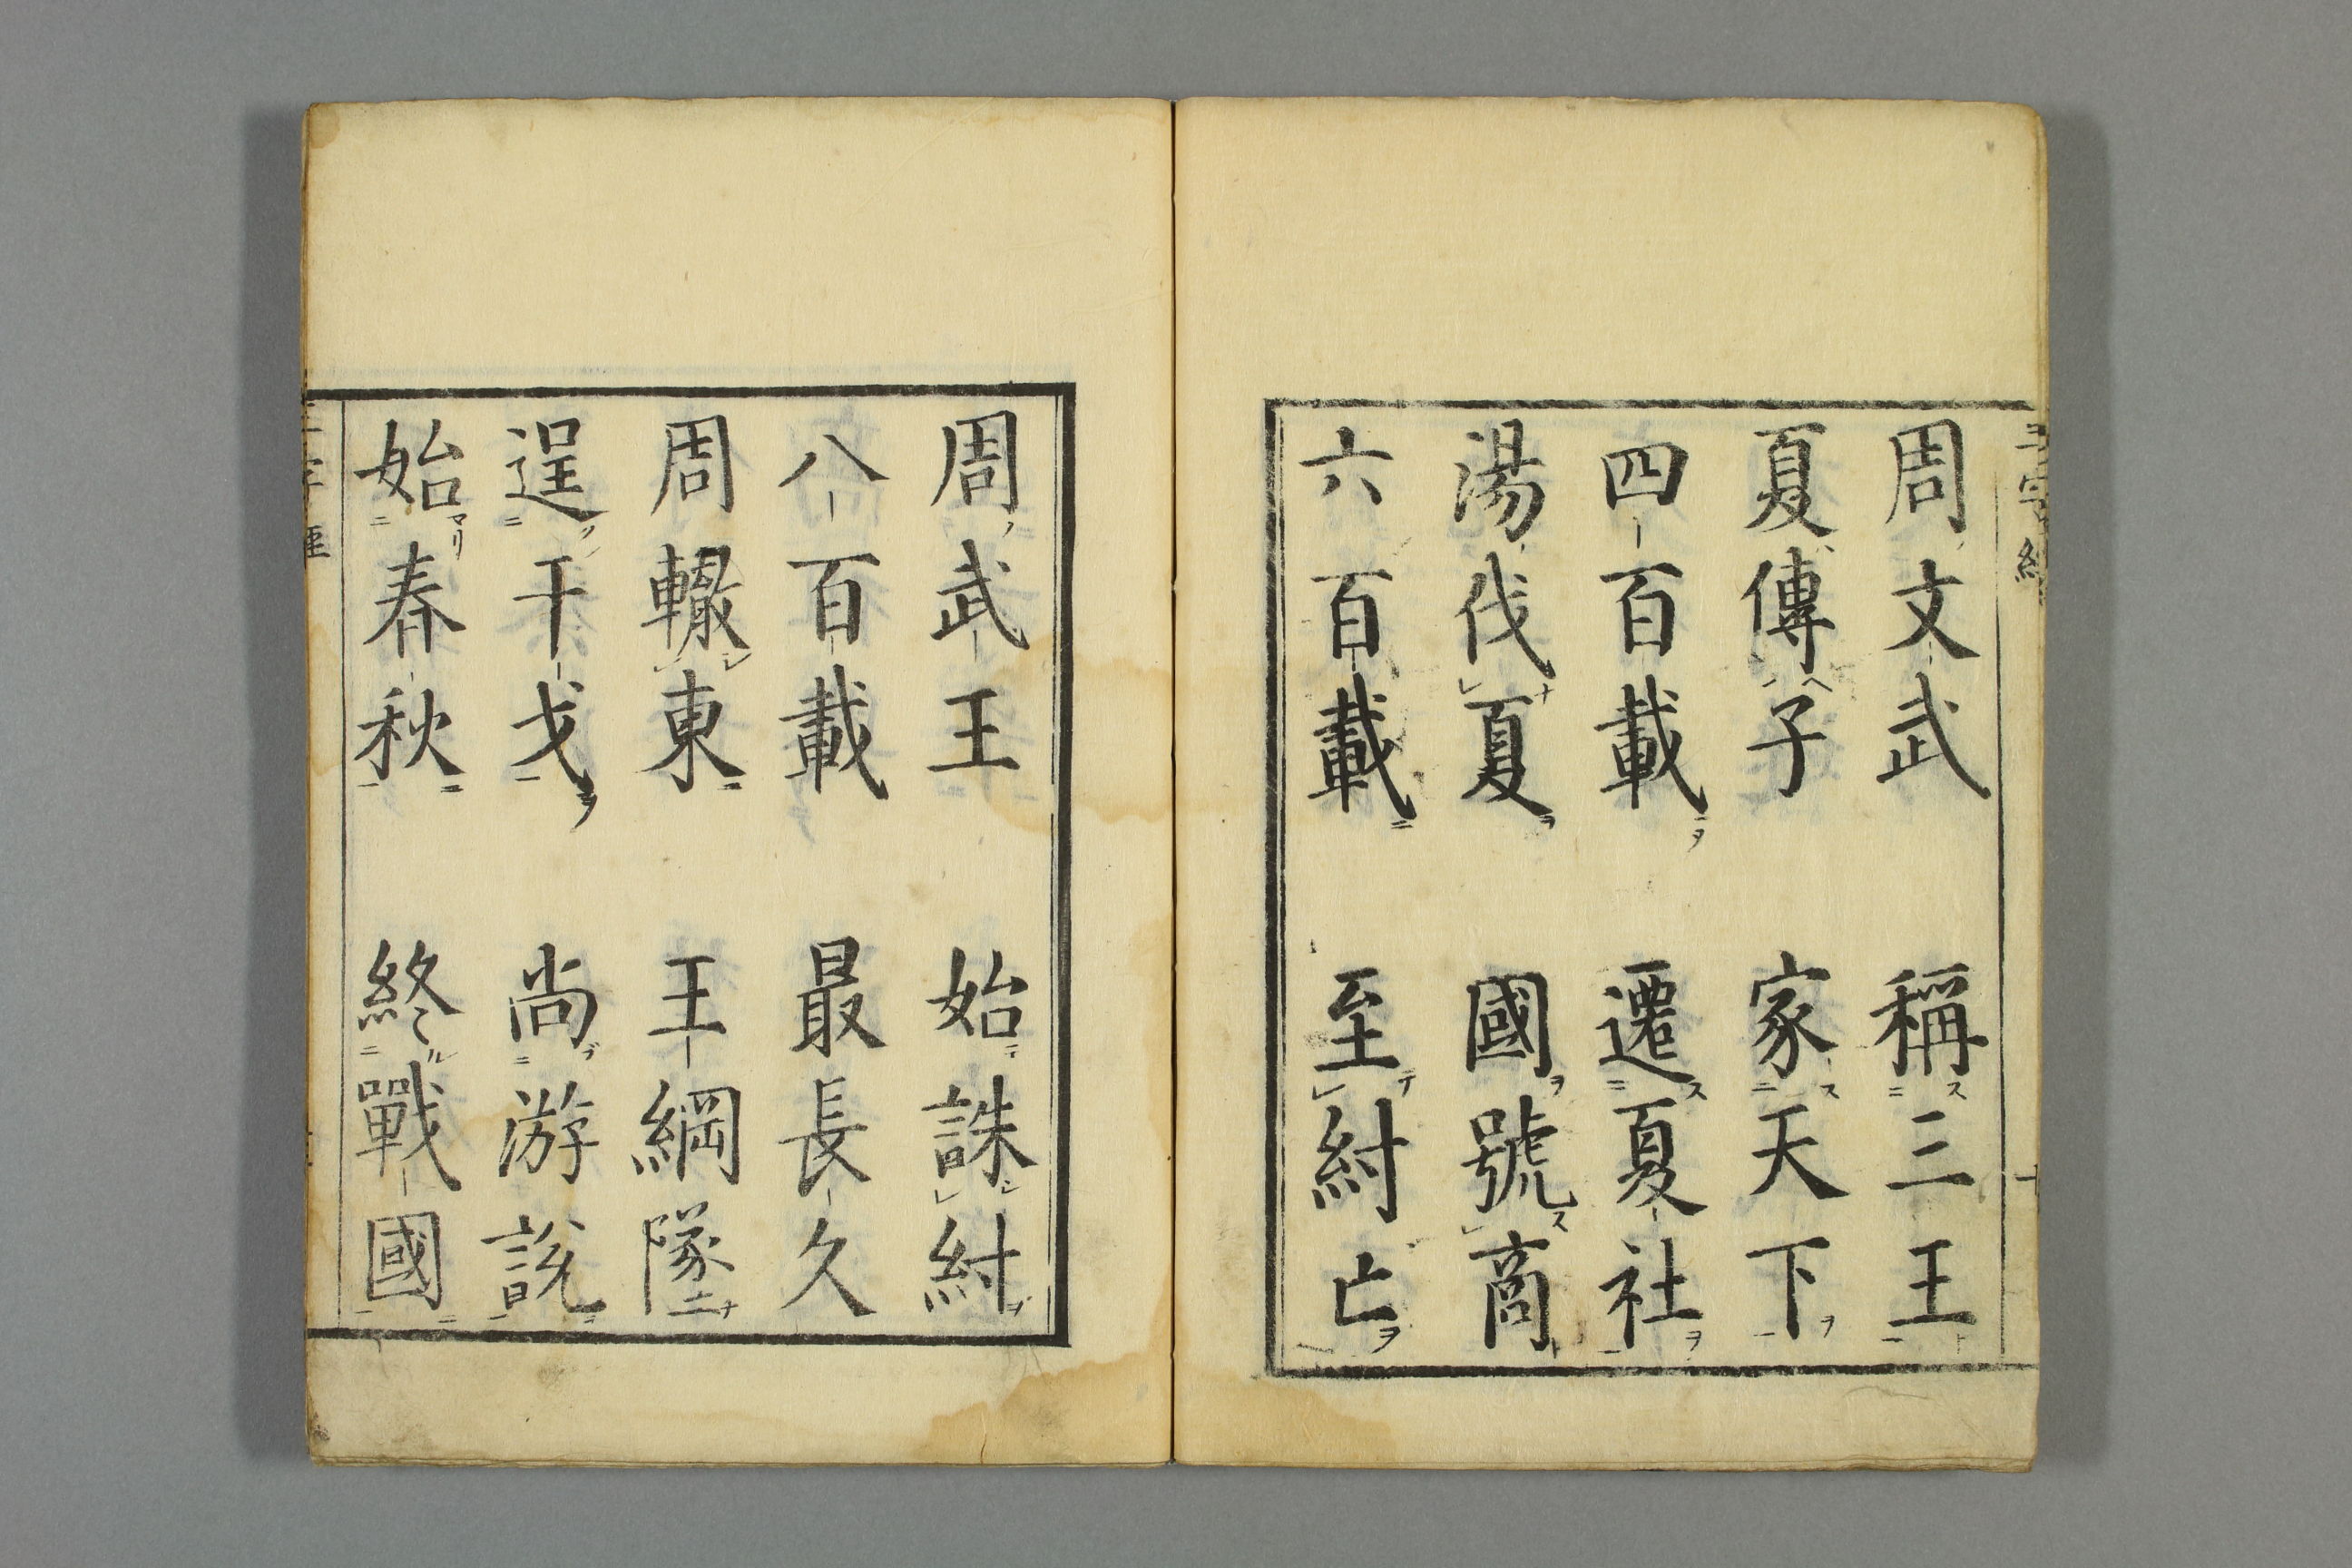 三字經
周文武 稱三王
夏傳子 家天下
四百載 遷夏社
湯伐夏 國號商
六百載 至紂亡
周武王 始誅紂
八百載 最長久
周轍東 王綱墜
逞干戈 尚游說
始春秋 終戰國